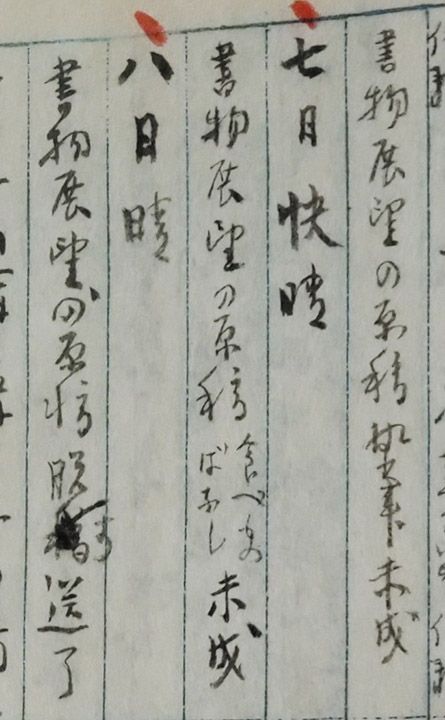 書物展望の原稿執筆未成
七日 快晴
書物展望の原稿 食べもの
ばなし 未成
八日 晴
書物展望の原稿脱稿送了